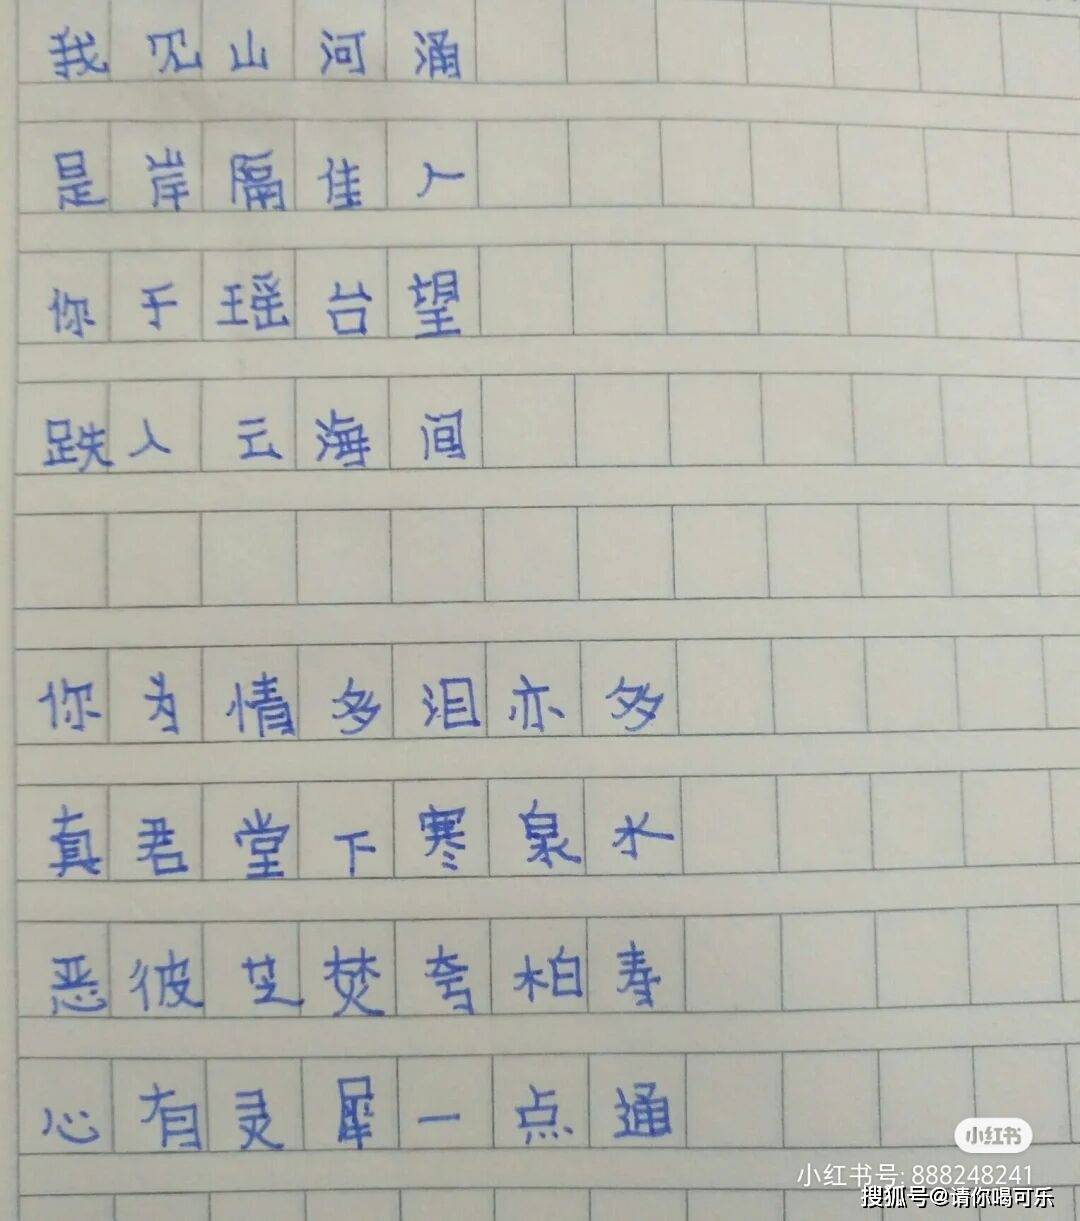 我见山河涌
是岸隔佳人
你于瑶台望
跌入云海间
你为情多泪亦多
真君堂下寒泉水
恶彼芝焚夸柏寿
心有灵犀一点通
小红书
小红书号: 888248241
搜狐号@请你喝可乐